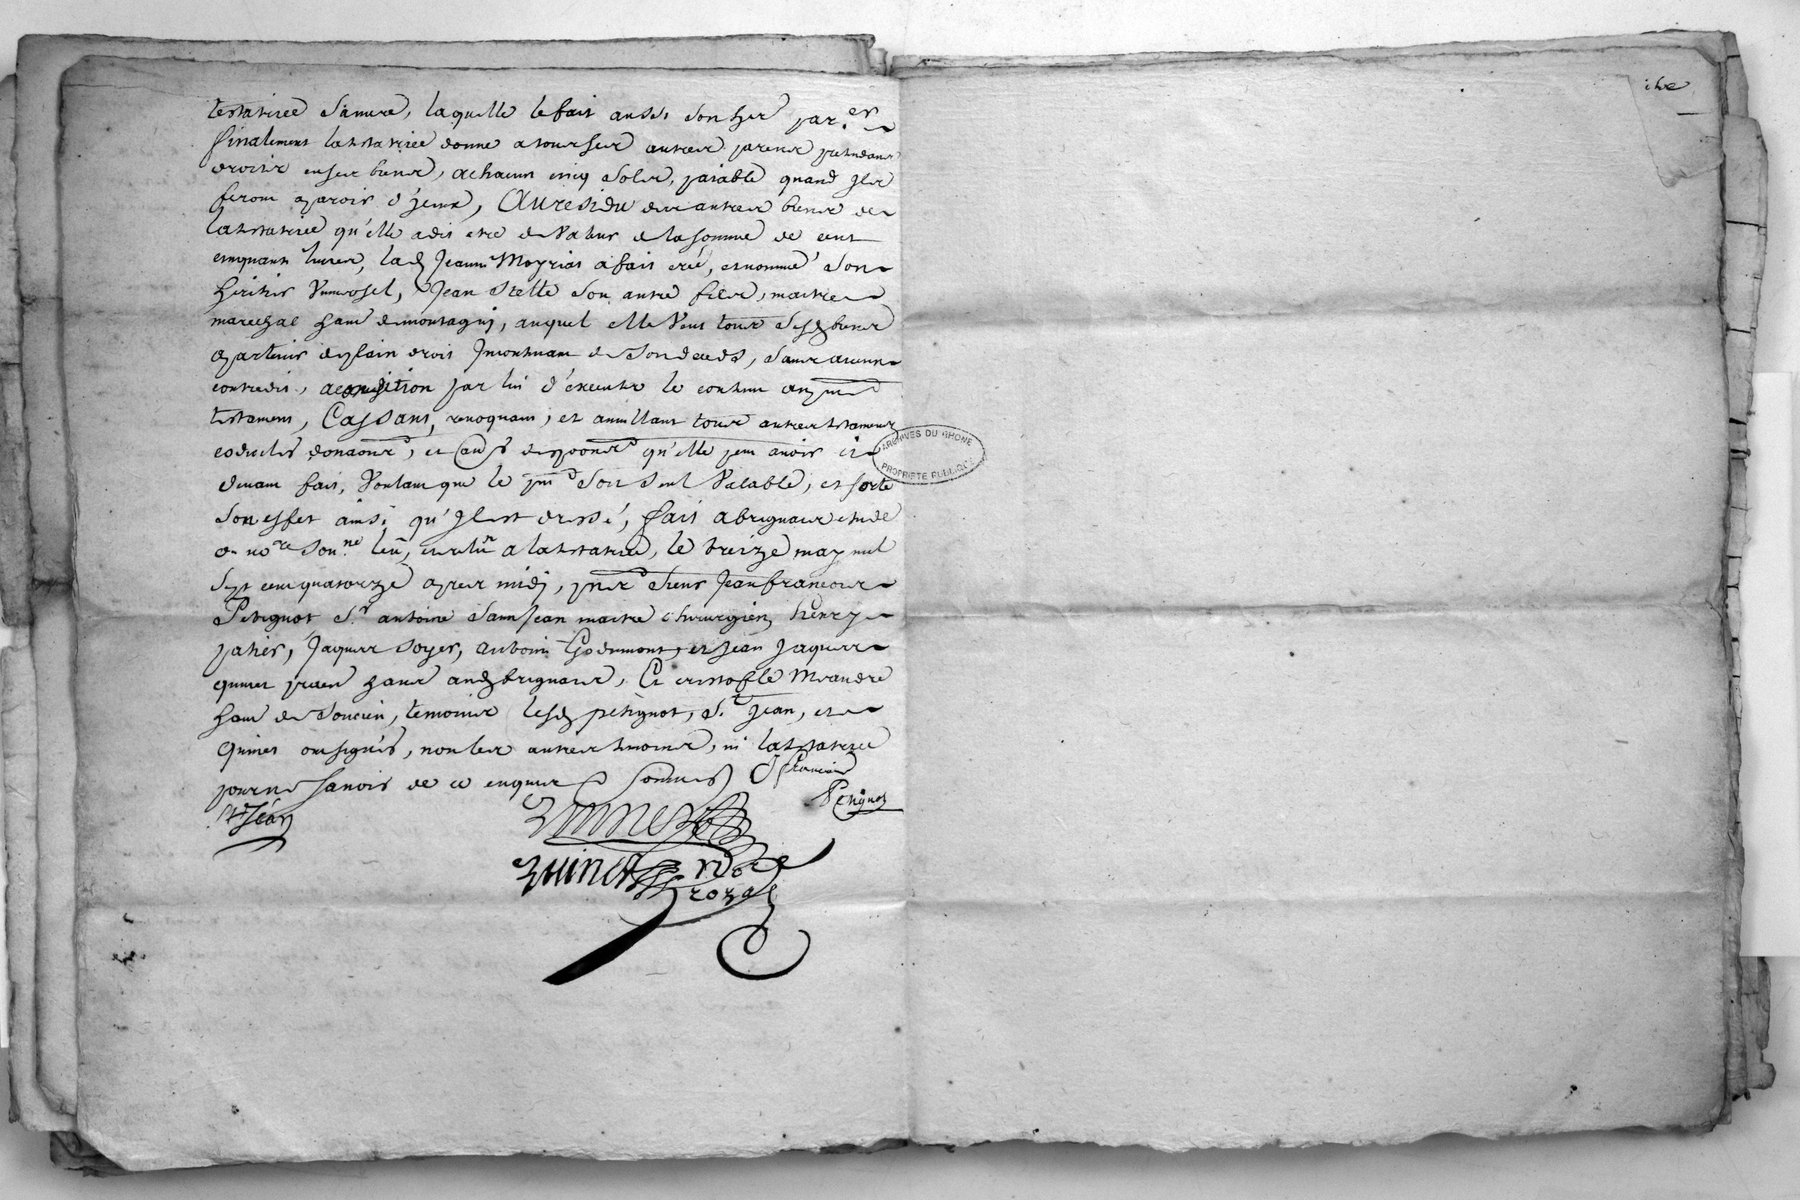 testatrice sa mere, laquelle le fait aussi son her par.er
finalement latestatrice donne a tous ses autres parens pretendans
droits en ses biens, a chacun cinq sols, paiable quand Ils
feront aparois d'jceux, Au residu des autres biens de
latestatrice qu'elle a dit etre de valeur de la somme de cent
cinquante livres, lad Jeanne Moyrias a fait creé, et nommé son
heritier universel, Jean Stelle son autre fils, maitre
marechal hant de montagni, auquel elle veut tous sesd biens
apartenir de plain droit Incontinant de son deceds, sans aucun
contredit, a condition par lui d'executer le contenu au pnt
testament, Cassant, revoquant, et anullant tous autres testamens
codicilles donaons, et autres disp̃oons qu'elle peut avoir ci
devant fait, voulant que le pnt soit seul valable, et sorte
son effet ainsi qu'Il est dressé, fait a brignais etude
du nore soune leu, et releu a latestatrice, le treize may mil
sept cent quatorze apres midi, pns sieur Jean francois
Petignot Sr antoine saint Jean maitre chirurgien, henry
patier, Jaques soyer, antoine Godemont, et Jean Jaques
quinet praen hans aud brignais, Et cristofle Meandre
hant de soucieu, temoins lesd petignot, St Jean, et
quinet ont signés, non les autres temoins, ni latestatrice
pour ne savoir de ce enquis et sommés J francois
Petignot
St Jéan
Quinet
Quinet
nore
royal
ARCHIVES DU RHONE
PROPRIETE PUBLIQUE